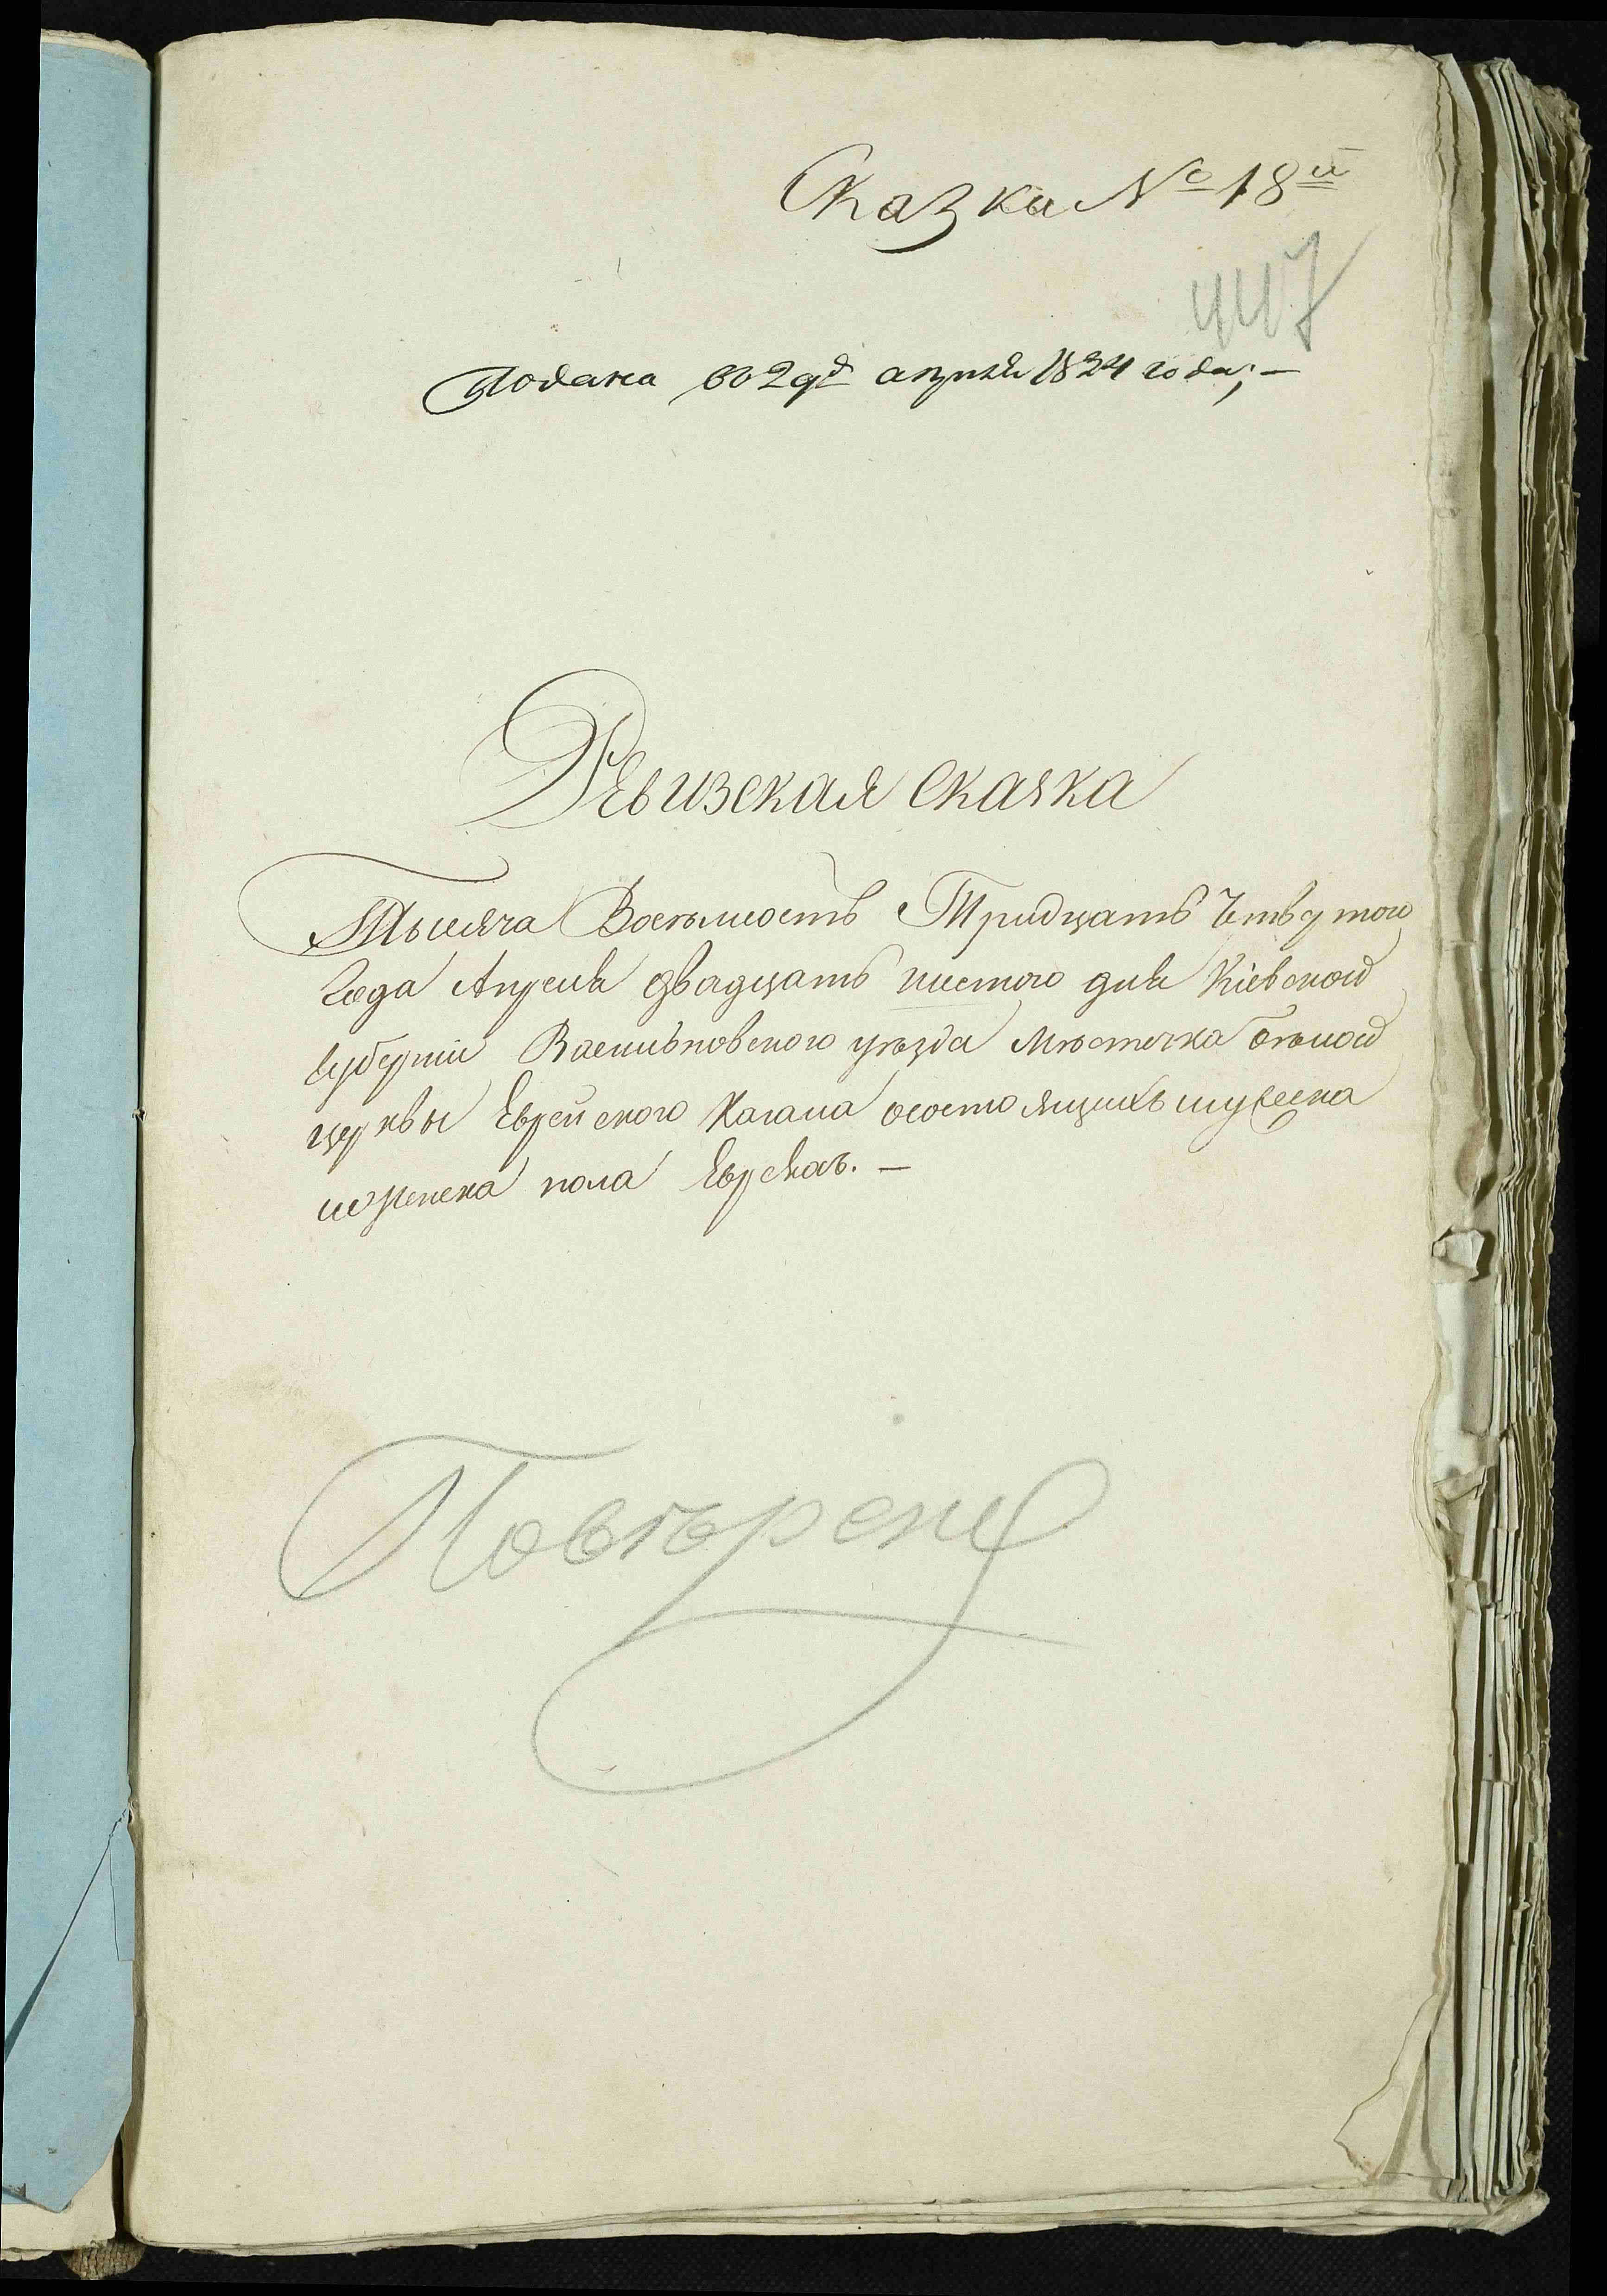 Сказка № 18й
447
Подана во 29д апреля 1834 года;—
Ревизская сказка
Тысяча Восемьсотъ Тридцать Четвертого
Года Апреля двадцать шестого дня Кіевской
Губерніи Васильковского уезда Местечка Белой
церквы Еврейского Кагала осостоящихъ мужеска
иженска пола Евреяхъ.—
Поверено